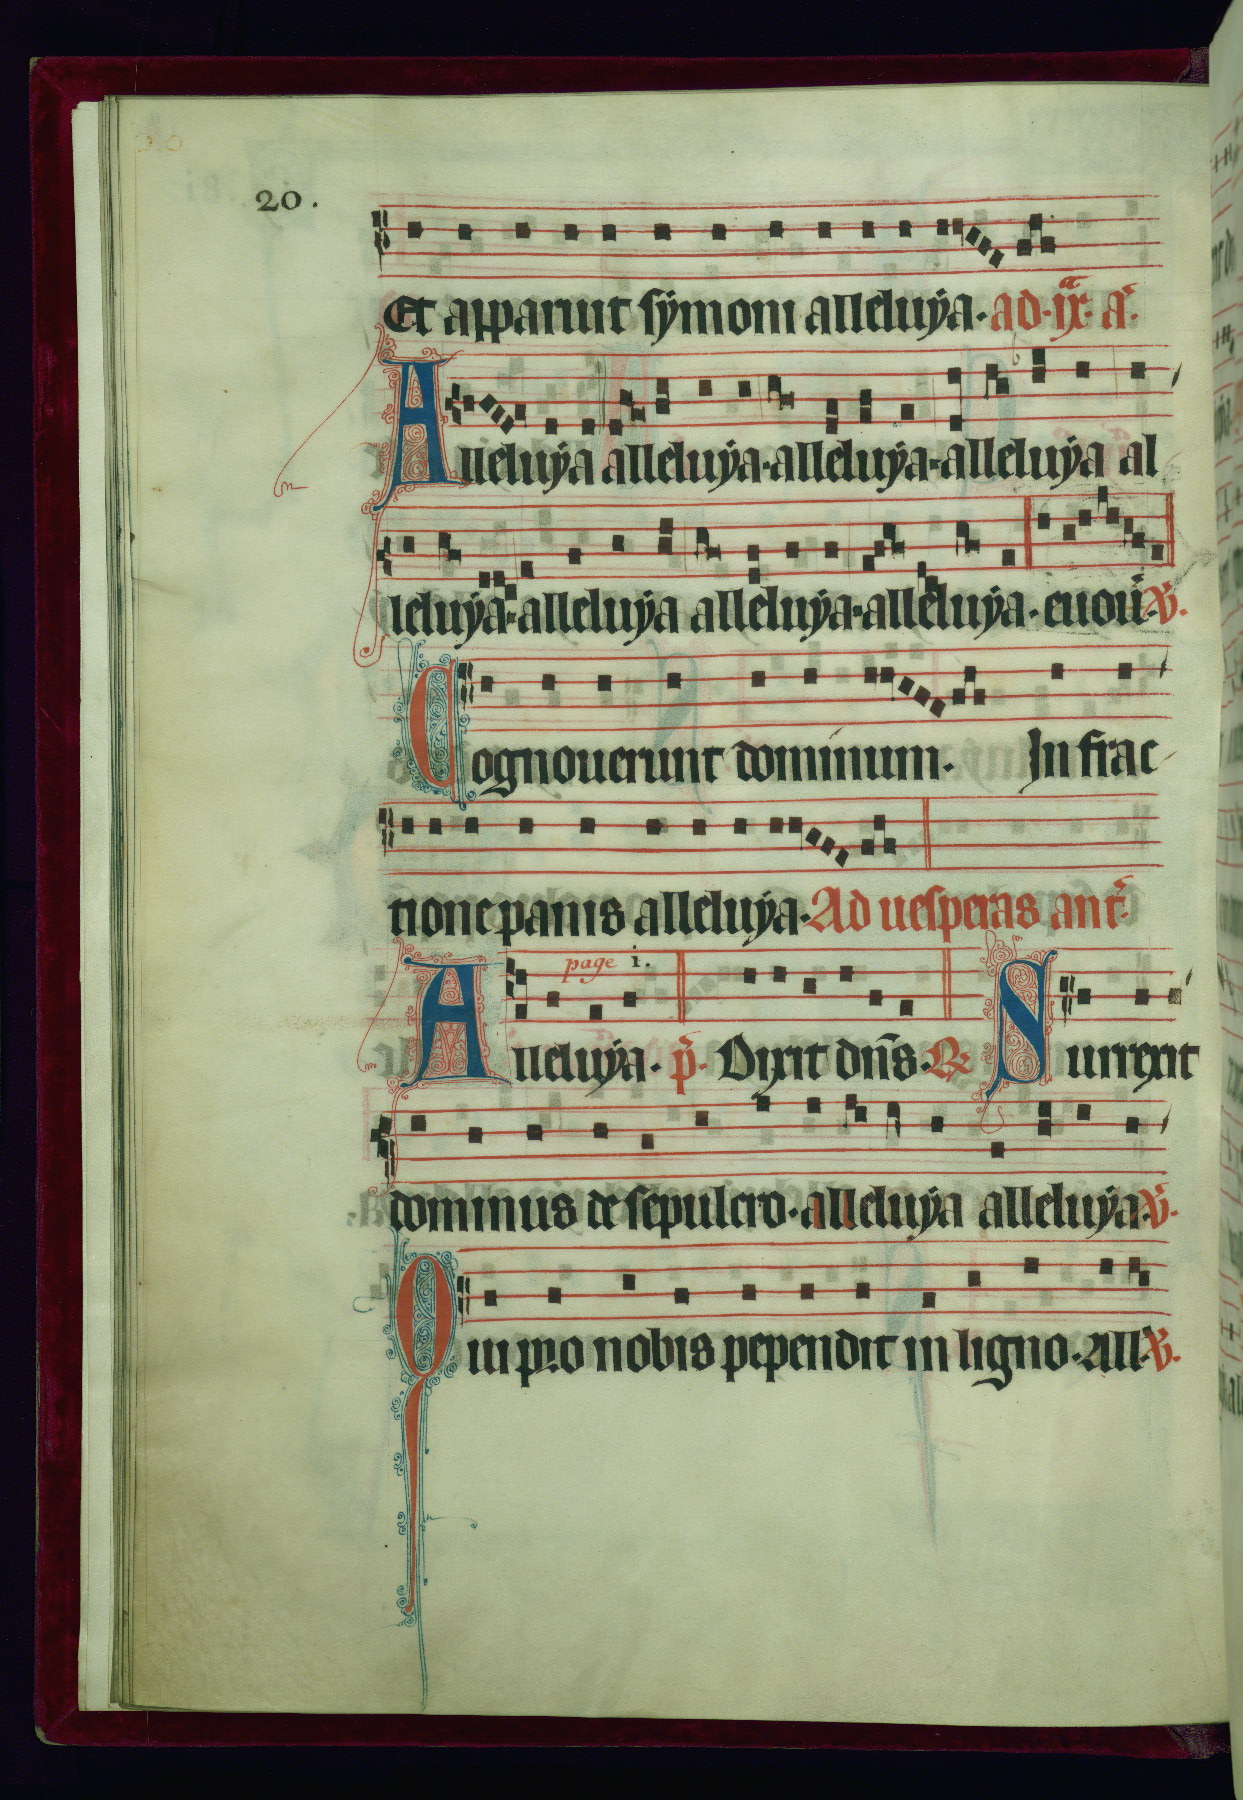 20.
Et apparuit symoni alleluÿa. ad .ix.ª a᷑.
Alleluÿa alleluÿa. alleluÿa. alleluÿa al
leluÿa. alleluÿa alleluÿa. alleluÿa. euou. ꝟ.
Cognouerunt dominum. In frac
tione panis alleluÿa. Ad uesperas ant᷑.
page i.
Alleluÿa. p᷑. Dixit dn̄s. ℞ Surrexit
dominus de sepulcro. alleluÿa alleluÿa. ꝟ.
Qui pro nobis pependit in ligno. All. ꝟ.